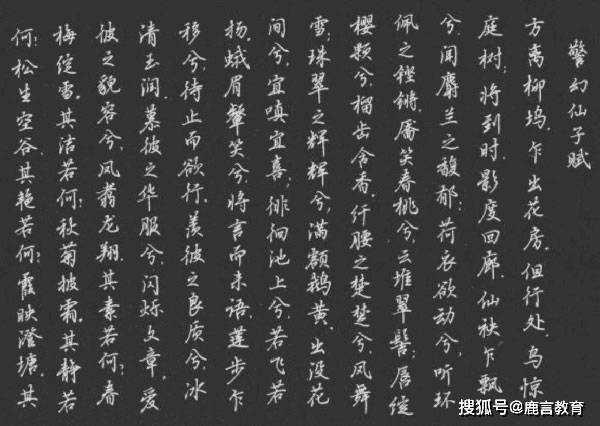 警幻仙子赋
方离柳坞，乍出花房。但行处，鸟惊
庭树；将到时，影度回廊。仙袂乍飘
兮，闻麝兰之馥郁；荷衣欲动兮，听环
佩之铿锵。靥笑春桃兮，云堆翠髻；唇绽
樱颗兮，榴齿含香。纤腰之楚楚兮，风舞
雪；珠翠之辉辉兮，满额鹅黄。出没花
间兮，宜嗔宜喜；徘徊池上兮，若飞若
扬。蛾眉颦笑兮，将言而未语；莲步乍
移兮，待止而欲行。羡彼之良质兮，冰
清玉润；慕彼之华服兮，闪烁文章。爱
彼之貌容兮，凤翥龙翔。其素若何？春
梅绽雪。其洁若何？秋菊披霜。其静若
何？松生空谷。其艳若何？霞映澄塘。其
搜狐号@鹿言教育